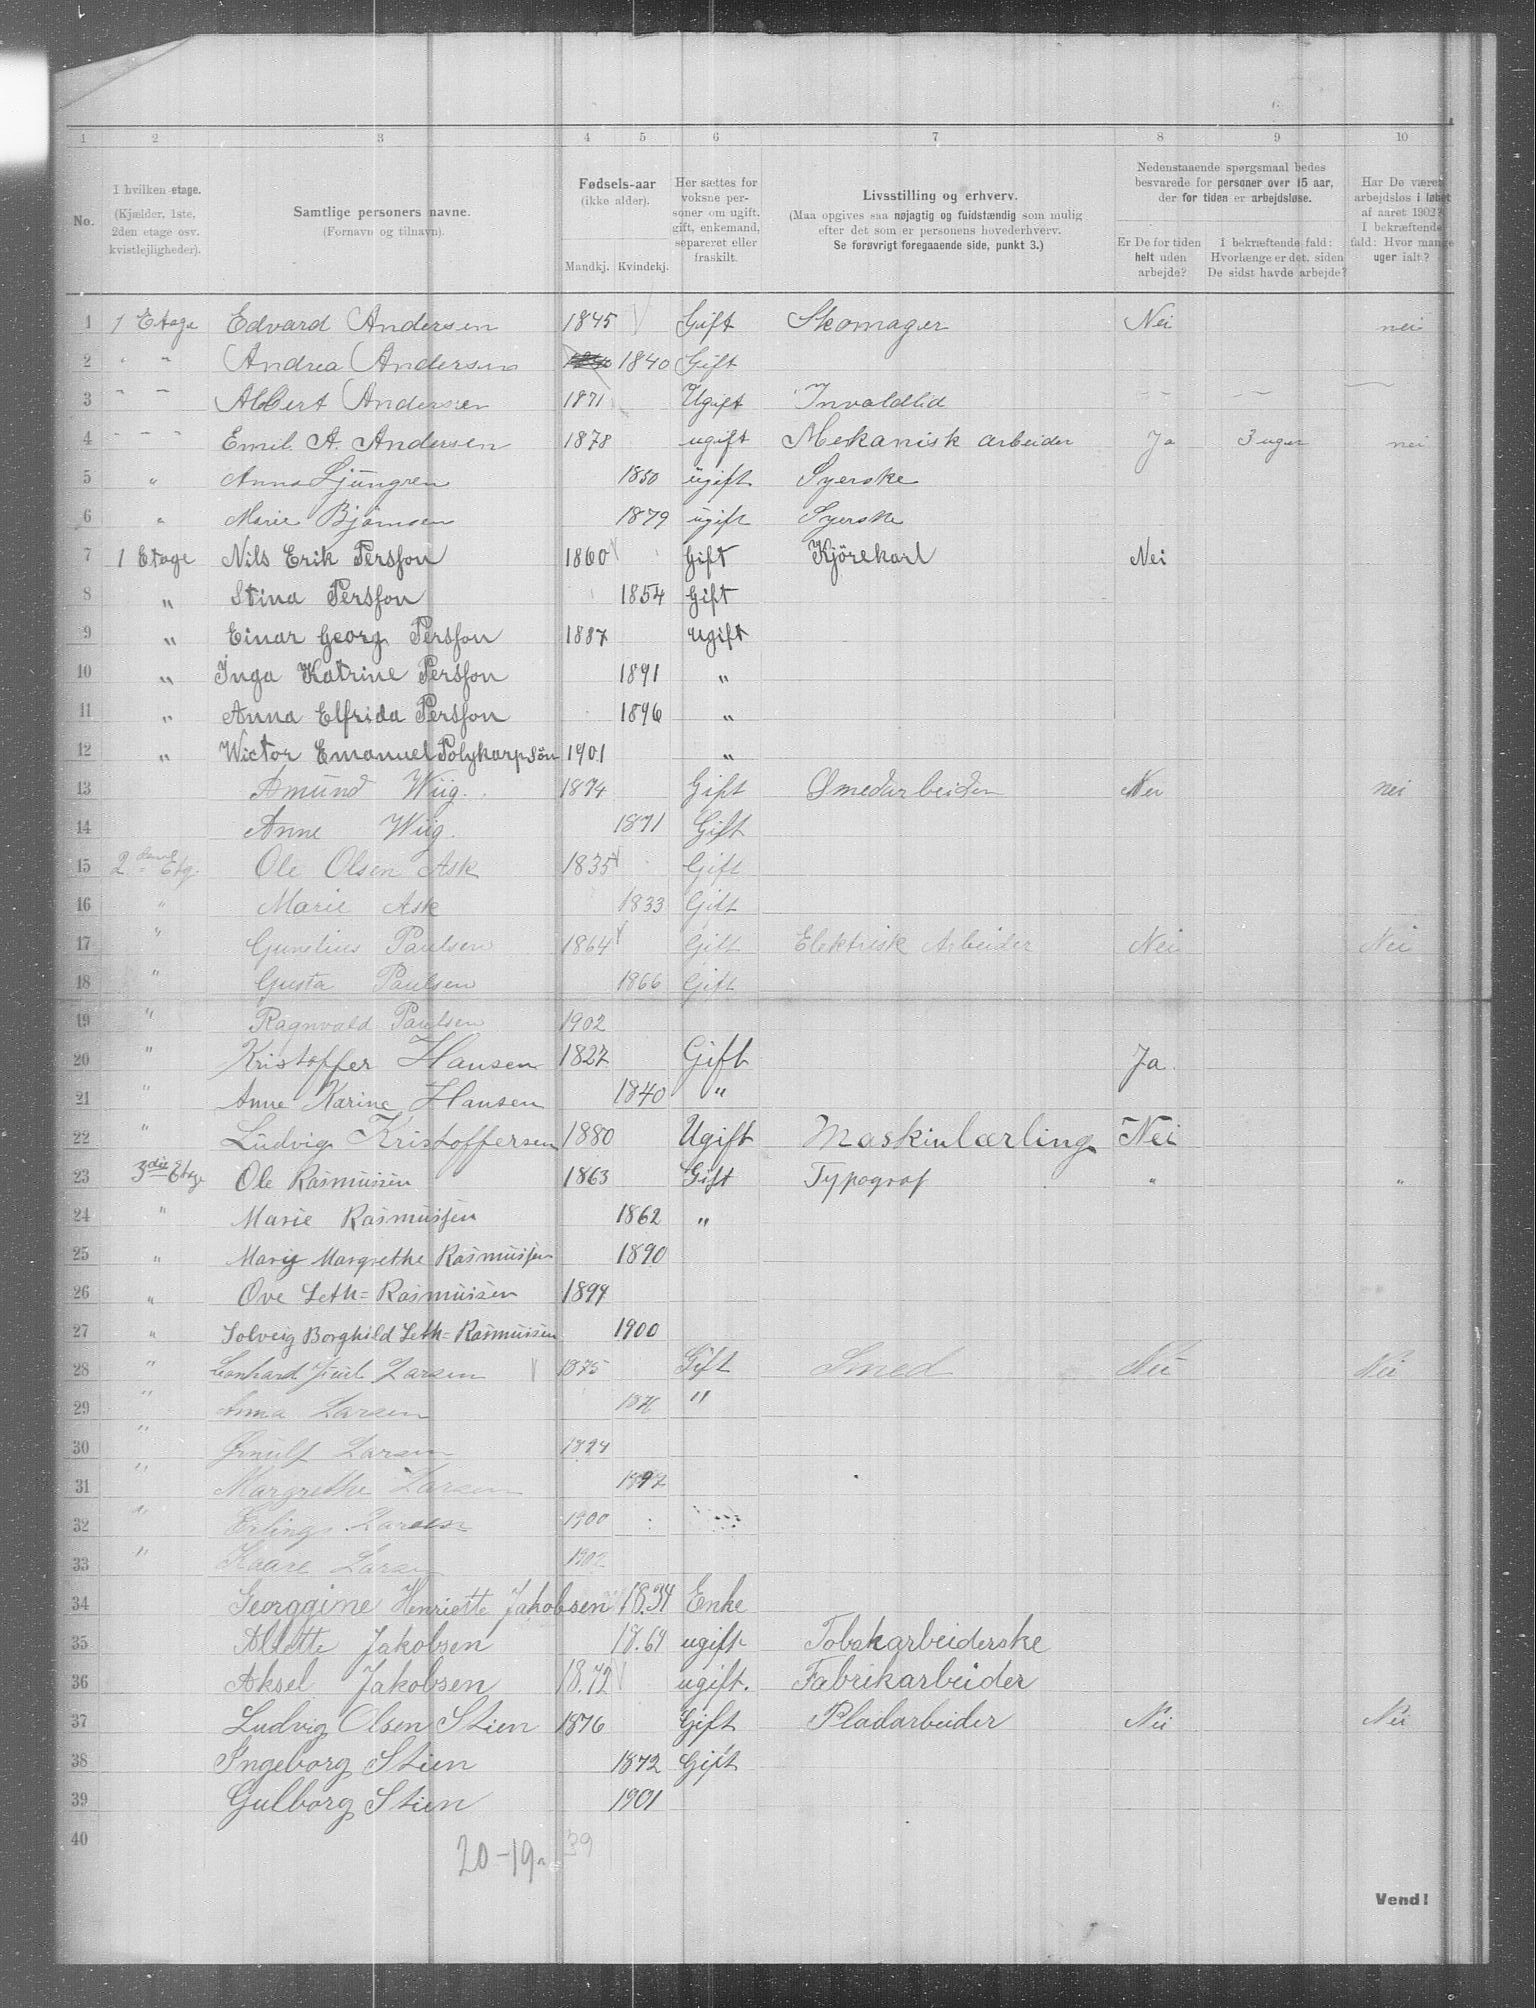 1 2 3 4 5 6 7 8 9 10
No.
I hvilken etage.
(Kjælder, 1ste,
2den etage osv.
kvistlejligheder).
Samtlige personers navne.
(Fornavn og tilnavn).
Fødsels-aar
(ikke alder).
Mandkj. Kvindekj.
Her sættes for
voksne per-
soner om ugift,
gift, enkemand,
separeret eller
fraskilt.
Livsstilling og erhverv.
(Maa opgives saa nøjagtig og fuldstændig som mulig
efter det som er personens hovederhverv.
Se forøvrigt foregaaende side, punkt 3.)
Nedenstaaende spørgsmaal bedes
besvarede for personer over 15 aar,
der for tiden er arbejdsløse.
Er De for tiden
helt uden
arbejde?
I bekræftende fald:
Hvorlænge er det, siden
De sidst havde arbejde?
Har De været
arbejdsløs i løbet
af aaret 1902?
I bekræftende
fald: Hvor mange
uger ialt?
1 1 Etage Edvard Andersen 1845 Gift Skomager Nei nei
2 " " Andrea Andersen 1840 Gift
3 " " Albert Andersen 1871 Ugift Invaldlid
4 " " " Emil A. Andersen 1878 ugift Mekanisk arbeider Ja 3 uger nei
5 " Anna Ljungren 1850 ugift Syerske
6 " Marie Bjørnsen 1879 ugift Syerske
7 1 Etage Nils Erik Persson 1860 Gift Kjörekarl Nei
8 " Stina Persson 1854 Gift
9 " Einar Georg Persson 1887 ugift
10 " Inga Katrine Persson 1891 "
11 " Anna Elfrida Persson 1896 "
12 " Wictor Emanuel Polykarpsön 1901 "
13 Amund Wiig. 1874 Gift Smedarbeider Nei nei
14 Anne Wiig. 1871 Gift
15 2den Etg. Ole Olsen Ask 1835 Gift
16 " Marie Ask 1833 Gift
17 " Gunelius Paulsen 1864 Gift Elektrisk Arbeider Nei Nei
18 " Gusta Paulsen 1866 Gift
19 " Ragnvald Paulsen 1902
20 " Kristoffer Hansen 1827 Gift Ja.
21 " Anne Karine Hansen 1840 "
22 " Ludvig Kristoffersen 1880 Ugift Maskinlærling Nei
23 3die Etage Ole Rasmussen 1863 Gift Typograf " "
24 " Marie Rasmussen 1862 "
25 " Mary Margrethe Rasmussen 1890
26 " Ove Leth=Rasmussen 1899
27 " Solveig Borghild Leth=Rasmussen 1900
28 " Leonhard Juul Larsen 1875 Gift Smed Nei Nei
29 " Anna Larsen 1876 "
30 " Larsen
31 " Margrethe Larsen 1897
32 " Erling Larsen 1900
33 " Kaare Larsen 1902
34 Georggine Henriette Jakobsen 18.34 Enke
35 Alette Jakobsen 18.64 ugift Tobakarbeiderske
36 Aksel Jakobsen 18.72 ugift. Fabrikarbeider
37 Ludvig Olsen Stien 1876 Gift Pladarbeider Nei Nei
38 Ingeborg Stien 1872 Gift
39 Gulborg Stien 1901
40
20-19 39
Vend!